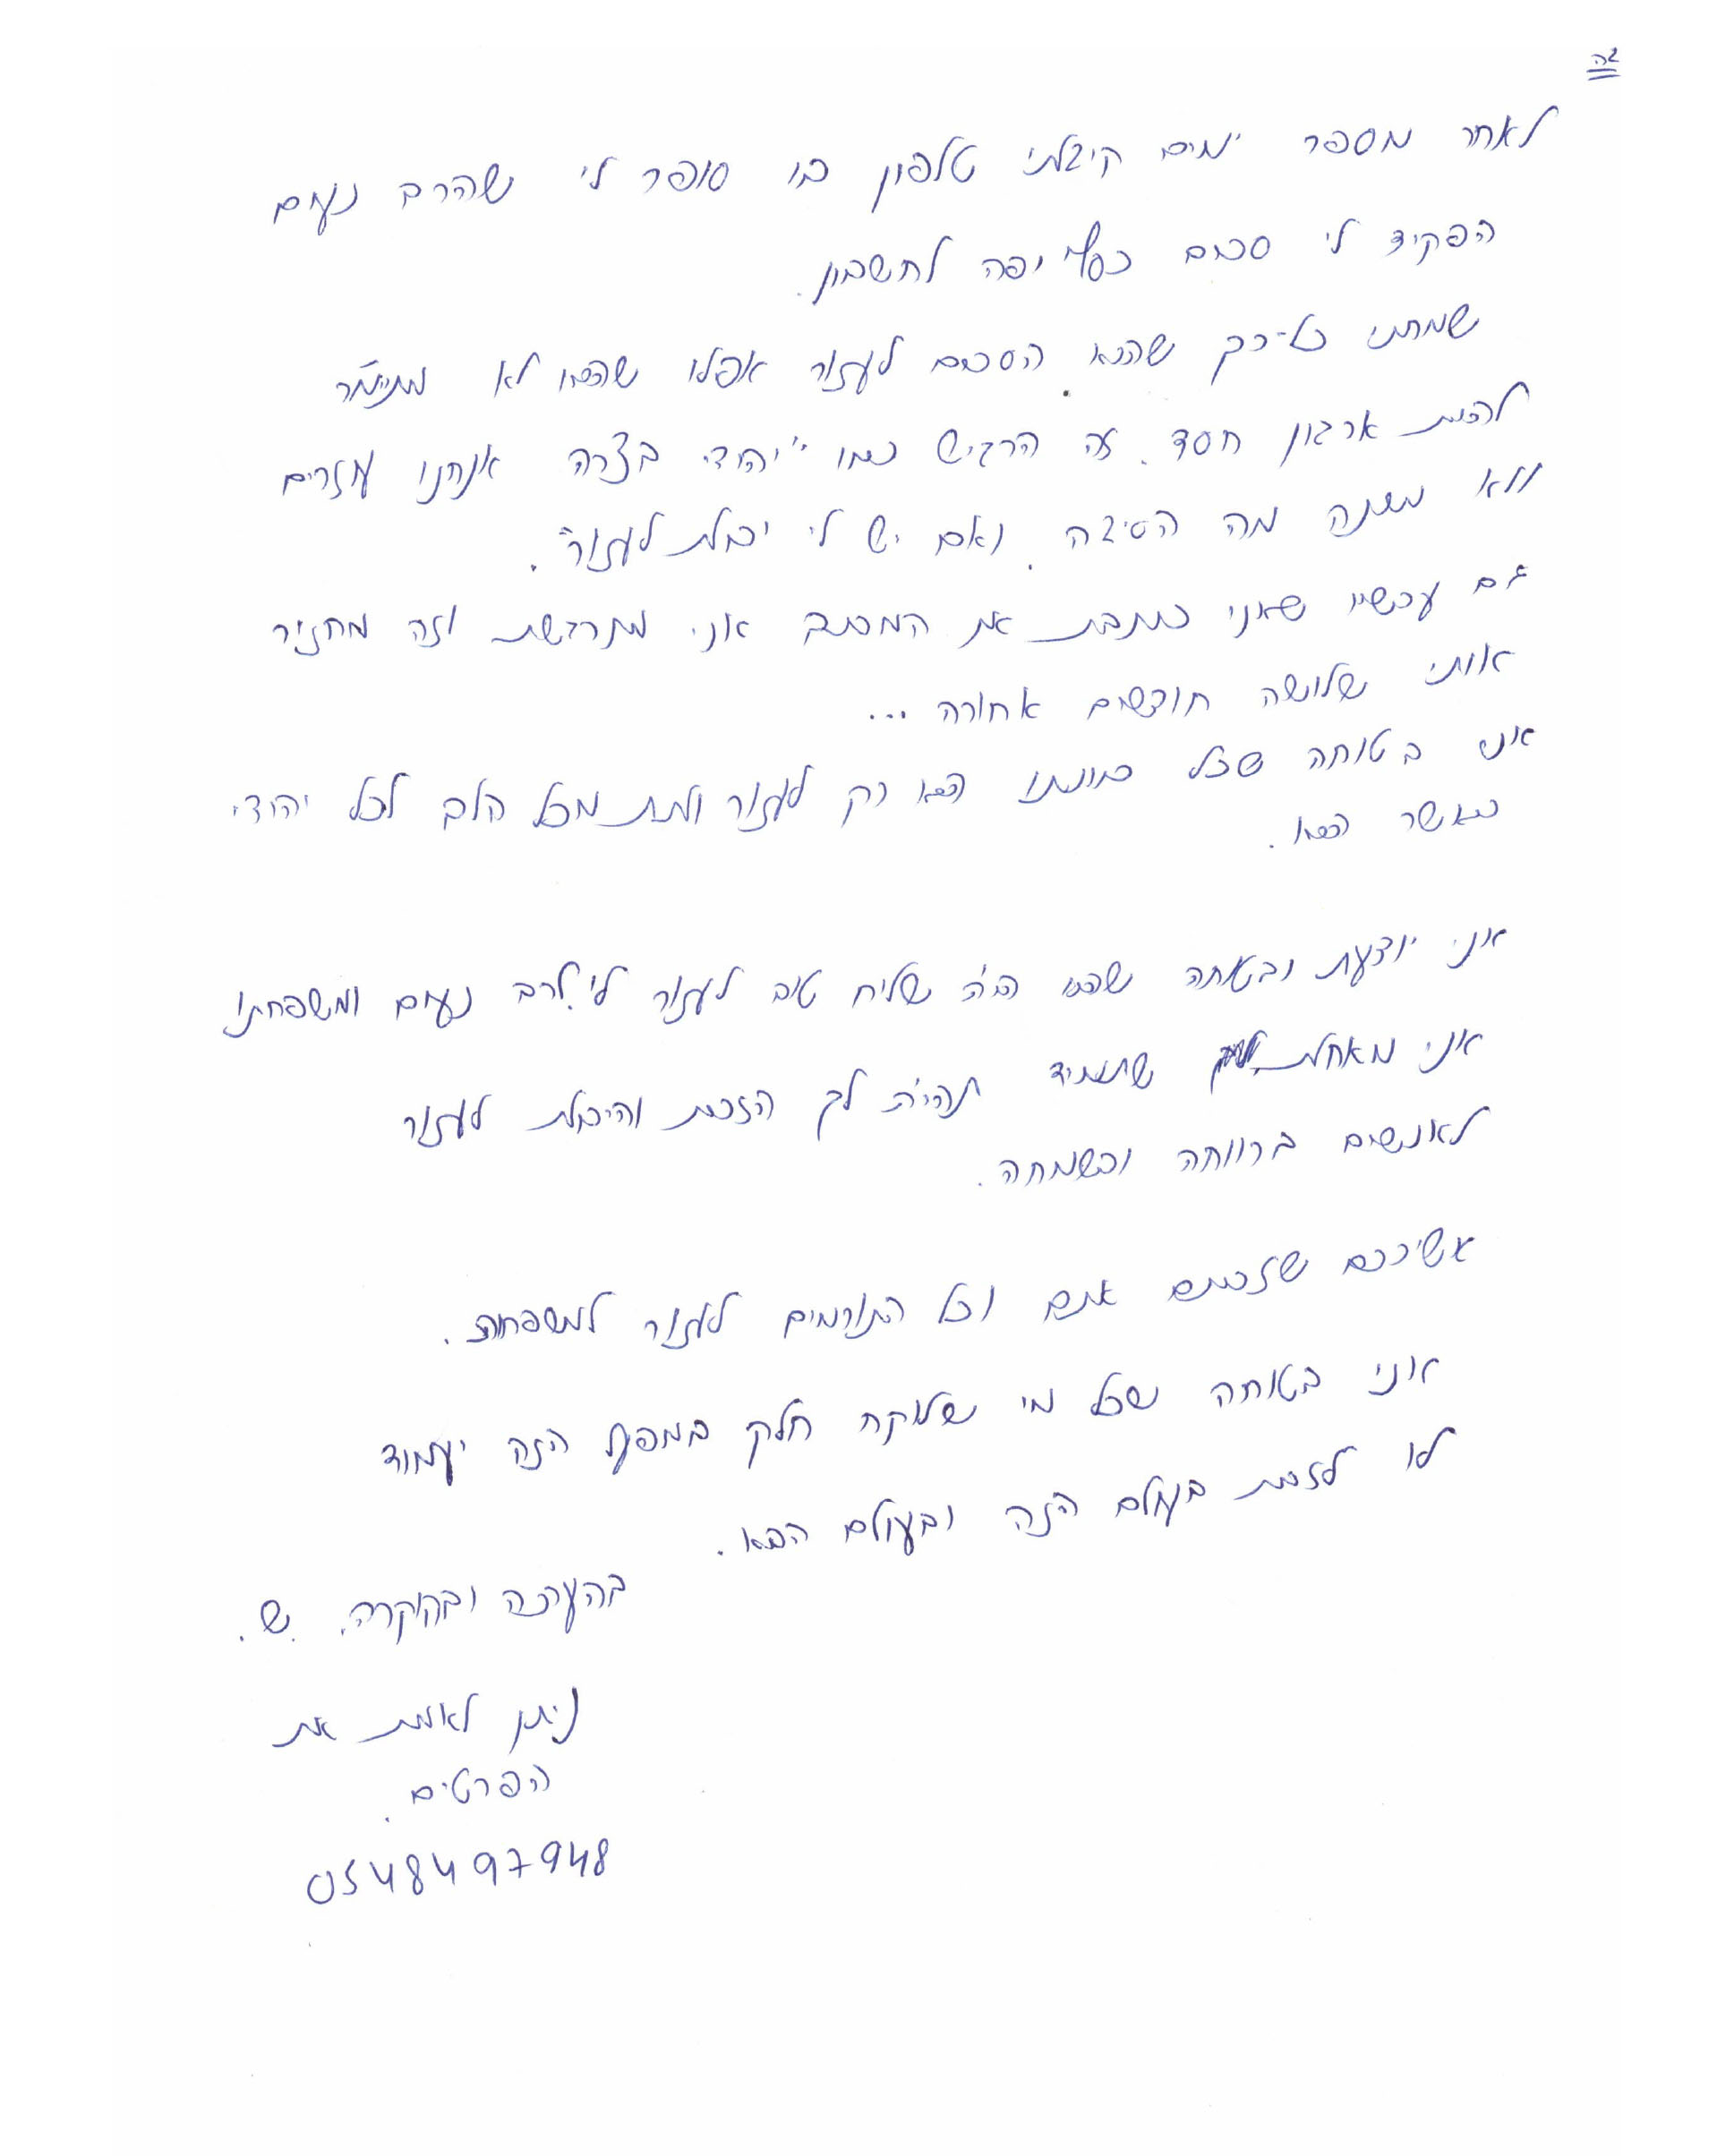 בה
לאחר מספר ימים קיבלתי טלפון בו סופר לי שהרב נעים
הפקיד לי סכום כסף יפה לחשבון.
שמחתי כל-כך שהוא הסכים לעזור אפלו שהוא לא מתיימר
להיות ארגון חסד. זה הרגיש כמו "יהודי בצרה אנחנו עוזרים
ולא משנה מה הסיבה. ואם יש לי יכולת לעזור".
גם עכשיו שאני כותבת את המכתב אני מתרגשת וזה מחזיר
אותי שלושה חודשים אחורה ...
אני בטוחה שכל כוונתו הוא רק לעזור ולתת מכל הלב לכל יהודי
כאשר הוא.
אני יודעת ובטוחה שהוא היה שליח טוב לעזור לי. לרב נעים ומשפחתו
אני מאחלת שתמיד תהיה לך הזכות והיכולת לעזור
לאנשים ברווחה ובשמחה.
אשיככם שזכיתם אתם וכל התורמים לעזור למשפחות.
אני בטוחה שכל מי שלוקח חלק במפעל הזה יעמוד
לו לזכות בעולם הזה ובעולם הבא.
בהערכה ובהוקרה. ש.
ניתן לאמת את
הפרטים.
0548497948